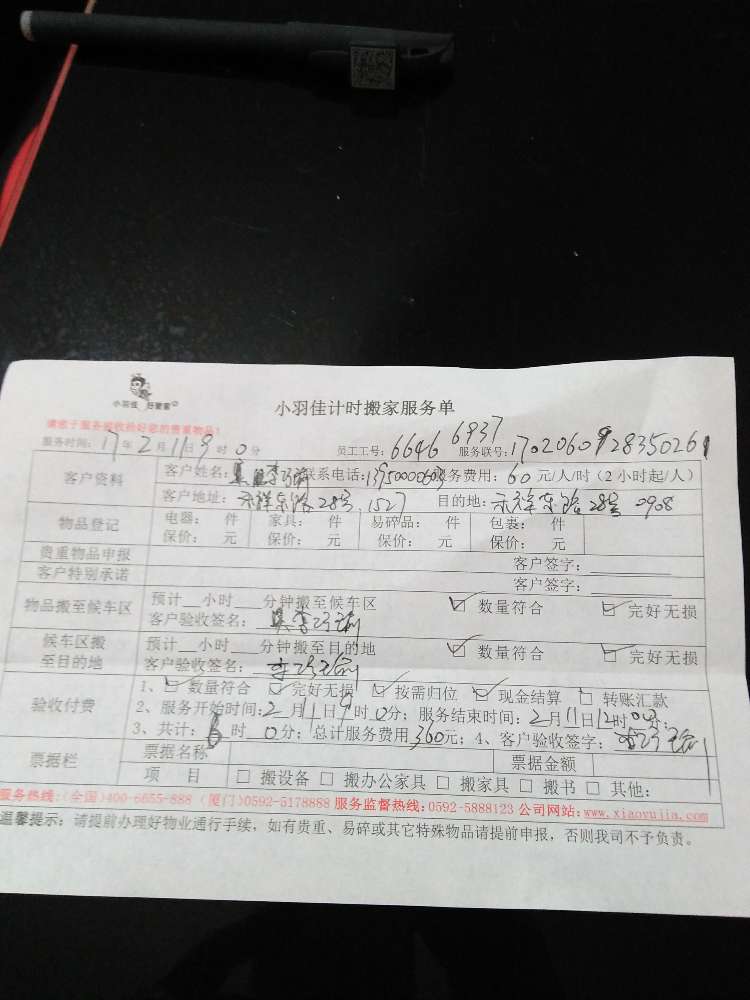 小羽佳 好管家
小羽佳计时搬家服务单
请您于服务前收拾好您的贵重物品!
服务时间: 17年2月11日9时0分 员工工号: 6646 6937 服务联号: 1702060928350261
客户资料 客户姓名: 联系电话: 服务费用: 60元/人/时(2小时起/人)
客户地址: 禾祥东路28号,1527 目的地: 禾祥东路28号 0908
物品登记 电器: 件 家具: 件 易碎品: 件 包裹: 件
保价: 元 保价: 元 保价: 元 保价: 元
贵重物品申报 客户签字:
客户特别承诺 客户签字:
物品搬至候车区 预计__小时__分钟搬至候车区 ☑ 数量符合 ☑ 完好无损
客户验收签名:
候车区搬至目的地 预计__小时__分钟搬至目的地 ☑ 数量符合 ☑ 完好无损
客户验收签名:
验收付费 1、☑ 数量符合 ☑ 完好无损 ☑ 按需归位 ☑ 现金结算 □ 转账汇款
2、服务开始时间:2月11日9时0分; 服务结束时间:2月11日12时00分;
3、共计:6时0分; 总计服务费用360元; 4、客户验收签字:
票据栏 票据名称 票据金额
项 目 □ 搬设备 □ 搬办公家具 □ 搬家具 □ 搬书 □ 其他:
服务热线:(全国)400-6655-888 (厦门)0592-5178888 服务监督热线:0592-5888123 公司网站:www.xiaoyujia.com
温馨提示: 请提前办理好物业通行手续, 如有贵重、易碎或其它特殊物品请提前申报, 否则我司不予负责。